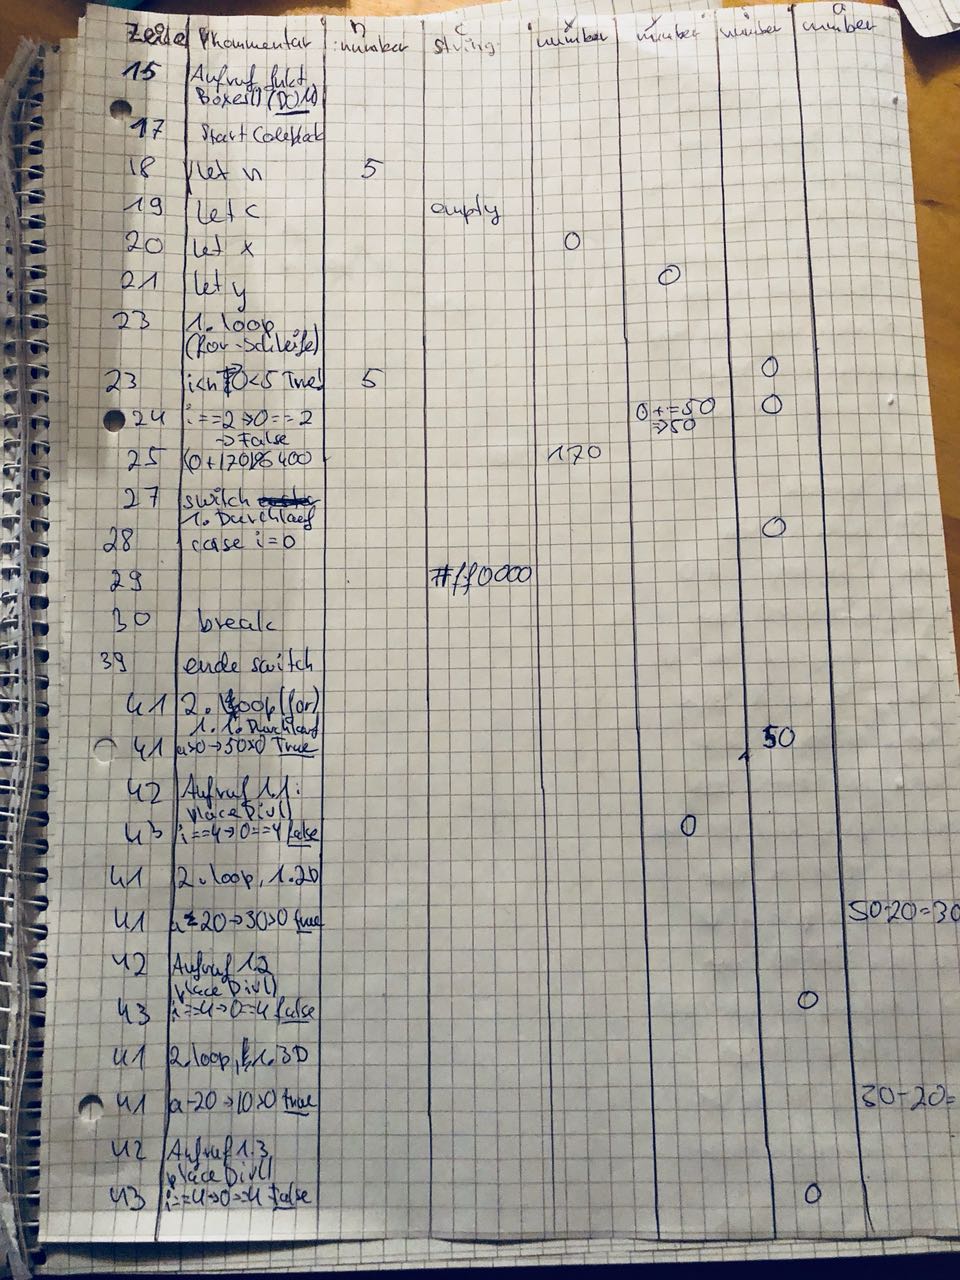 Zeile Kommentar n number c string x number y number i number a number
15 Aufruf fukt.
Boxes() (DOM)
17 Start Codeblock
18 let n 5
19 let c empty
20 let x 0
21 let y 0
23 1. loop
(for-Schleife)
0
23 i<n 0<5 True! 5
24 i==2→0==2 0+=50 0
→False ⇒50
25 170
27 switch
1. Durchlauf
28 case i=0 0
29 #ff0000
30 break
39 ende switch
41 2. loop (for)
1. 1. Durchlauf
41 a>0→50>0 True 50
42 Aufruf 1.1:
placeDiv()
43 i==4→0==4 false 0
41 2. loop, 1.2D
41 a-20→30>0 true 50-20=30
42 Aufruf 1.2
placeDiv()
43 i==4→0==4 false 0
41 2. loop, 1.3D
41 a-20→10>0 true 30-20=
42 Aufruf 1.3
placeDiv()
43 i==4→0==4 false 0